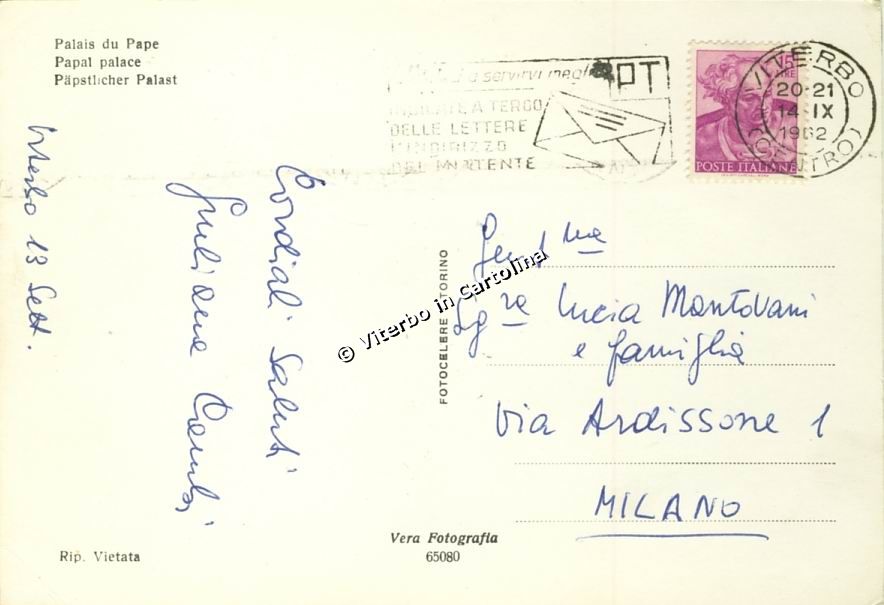 Palais du Pape
Papal palace
Päpstlicher Palast
a servirvi meglio
PT
INDICATE A TERGO
DELLE LETTERE
L'INDIRIZZO
DEL MITTENTE
15
LIRE
POSTE ITALIANE
VITERBO
20-21
14 IX
1962
(CENTRO)
Viterbo 13 Sett.
Cordiali saluti
Giuliana
© Viterbo in Cartolina
FOTOCELERE TORINO
Gent.ma
Sg.ra Lucia Mantovani
e famiglia
Via Ardissone 1
MILANO
Vera Fotografia
65080
Rip. Vietata